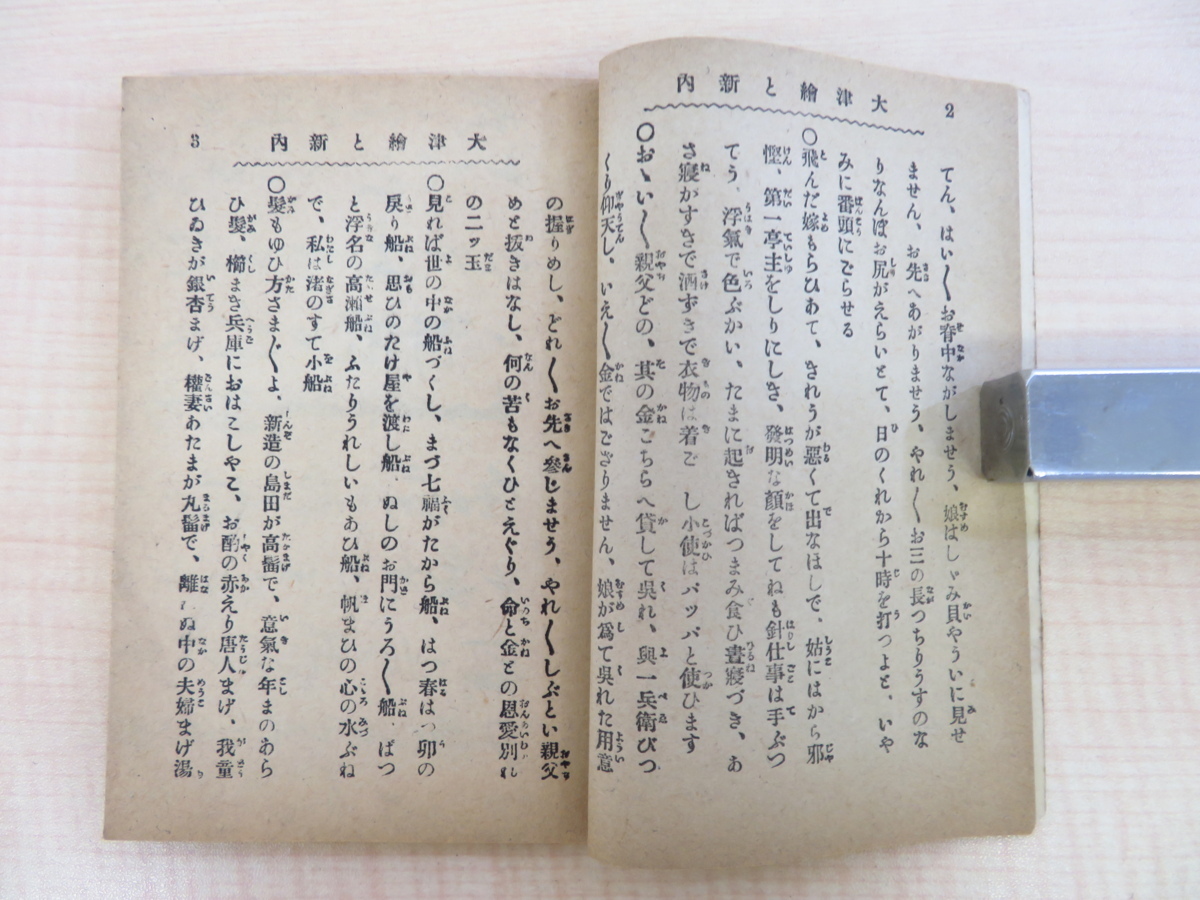 2
大津繪と新内
てん、はい〳〵お脊中ながしませう、娘はしゃみ貝やういに見せ
ません、お先へあがりませう、やれ〳〵お三の長つちりうすのな
りなんぼお尻がえらいとて、日のくれから十時を打つよと、いや
みに番頭にごらせる
〇飛んだ嫁もらひあて、きれうが悪くて出なほしで、姑にはから邪
慳、第一亭主をしりにしき、發明な顔をしてねも針仕事は手ぶつ
てう、浮氣で色ぶかい、たまに起きればつまみ食ひ晝寢づき、あ
さ寢がすきで酒ずきで衣物は着ご し小使はパッパと使ひます
〇おゝい〳〵親父どの、其の金こちらへ貸して呉れ、與一兵衛びつ
くり仰天し、いえ〳〵金ではござりません、娘が爲て呉れた用意
3
大津繪と新内
の握りめし、どれ〳〵お先へ參じませう、やれ〳〵しぶとい親父
めと抜きはなし、何の苦もなくひとえぐり、命と金との恩愛別れ
の二ッ玉
〇見れば世の中の船づくし、まづ七福がたから船、はつ春はつ卯の
戻り船、思ひのたけ屋を渡し船、ぬしのお門にうろ〳〵船、ぱつ
と浮名の高瀬船、ふたりうれしいもあひ船、帆まひの心の水ぶね
で、私は渚のすて小船
〇髪もゆひ方さま〴〵よ、新造の島田が高髷で、意氣な年まのあら
ひ髪、櫛まき兵庫におはこしやこ、お酌の赤えり唐人まげ、我童
ひゐきが銀杏まげ、權妻あたまが丸髷で、離れぬ中の夫婦まげ湯